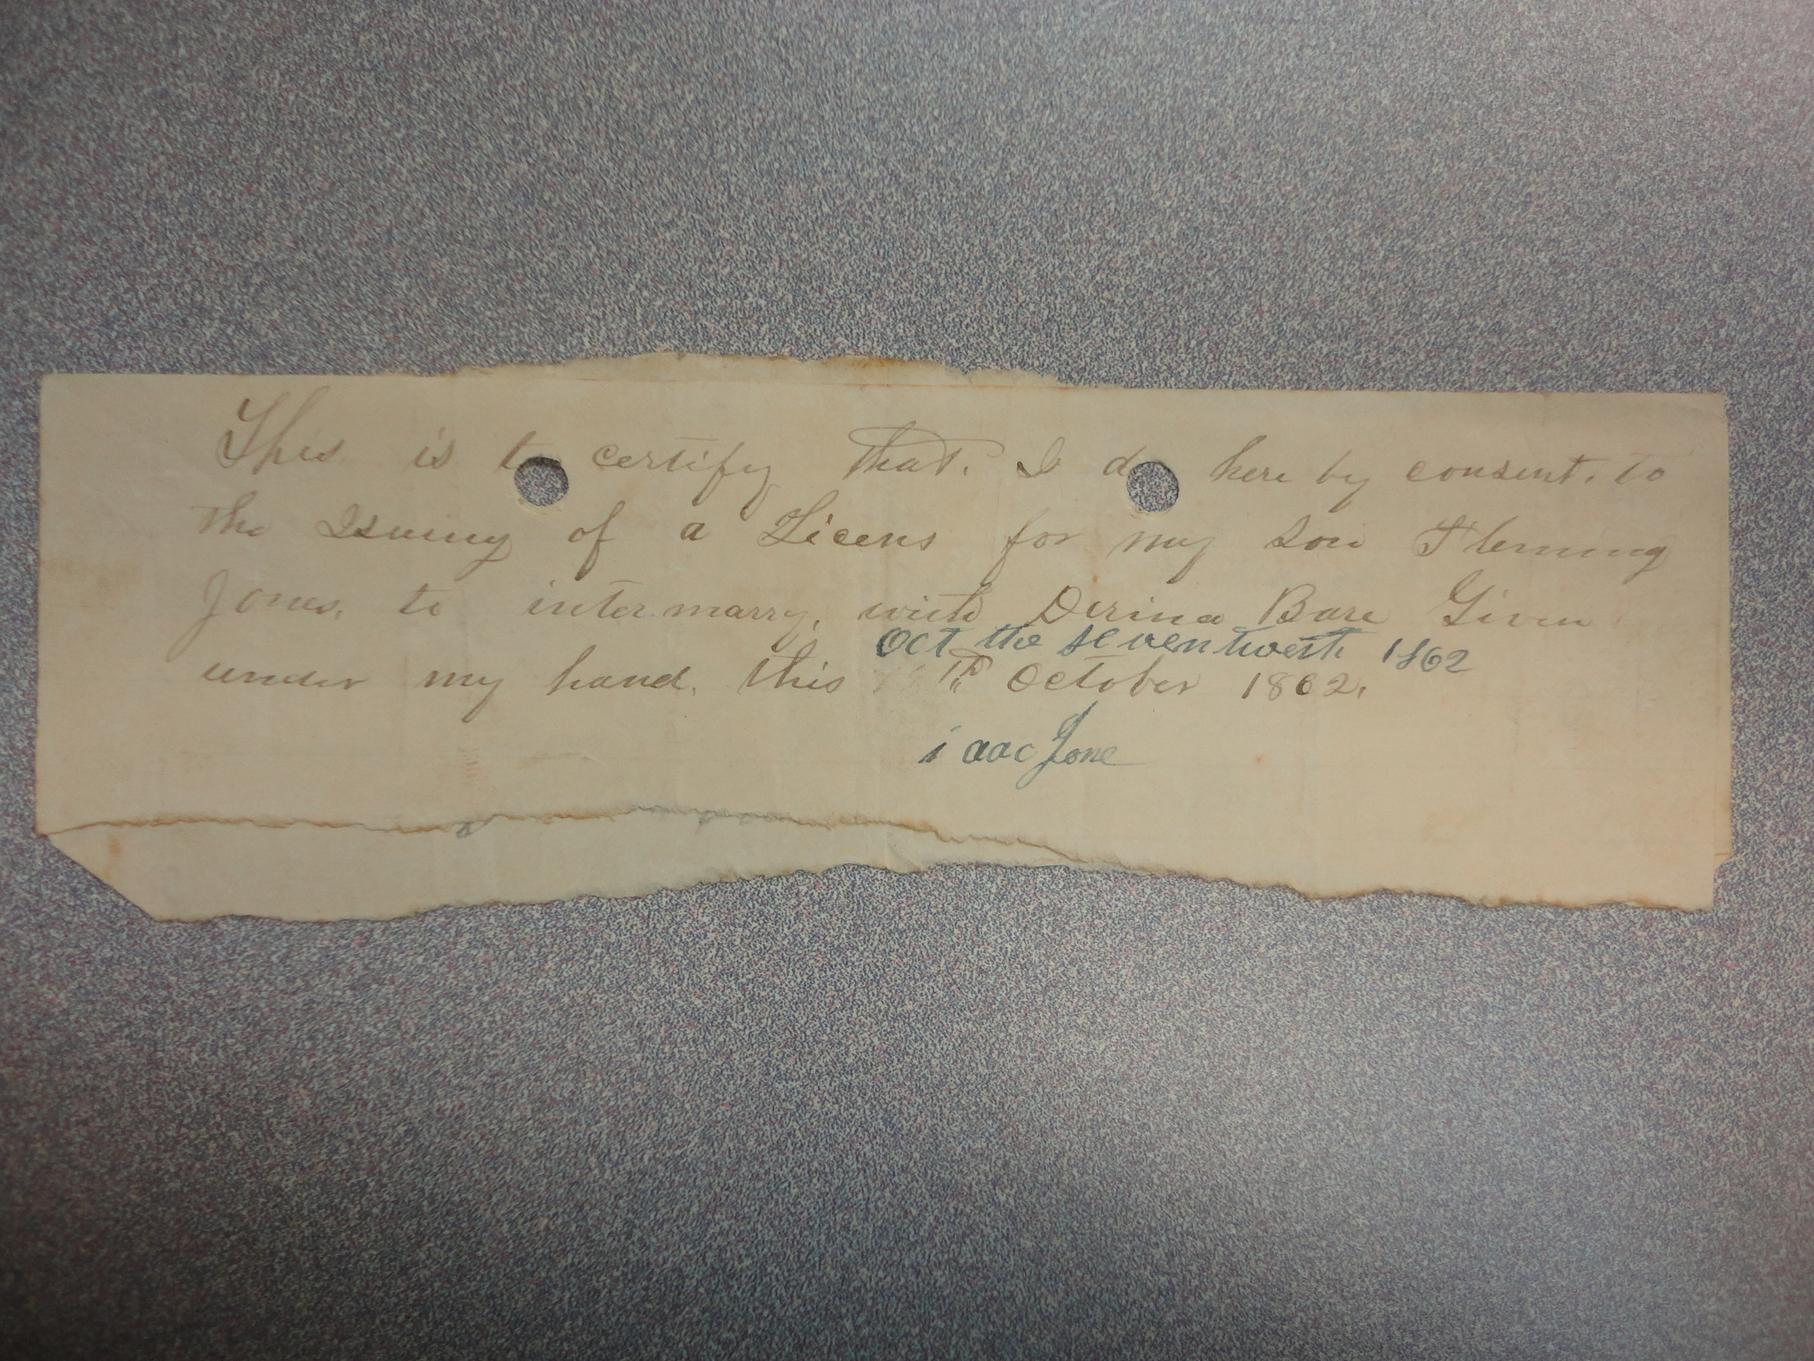 This is to certify that. I do here by consent. to
the Isuing of a Licens for my son Fleming
Jones. to inter marry. with Derina Bare Given
Oct the seventwest 1862
under my hand. this th October 1862.
iaac Jone